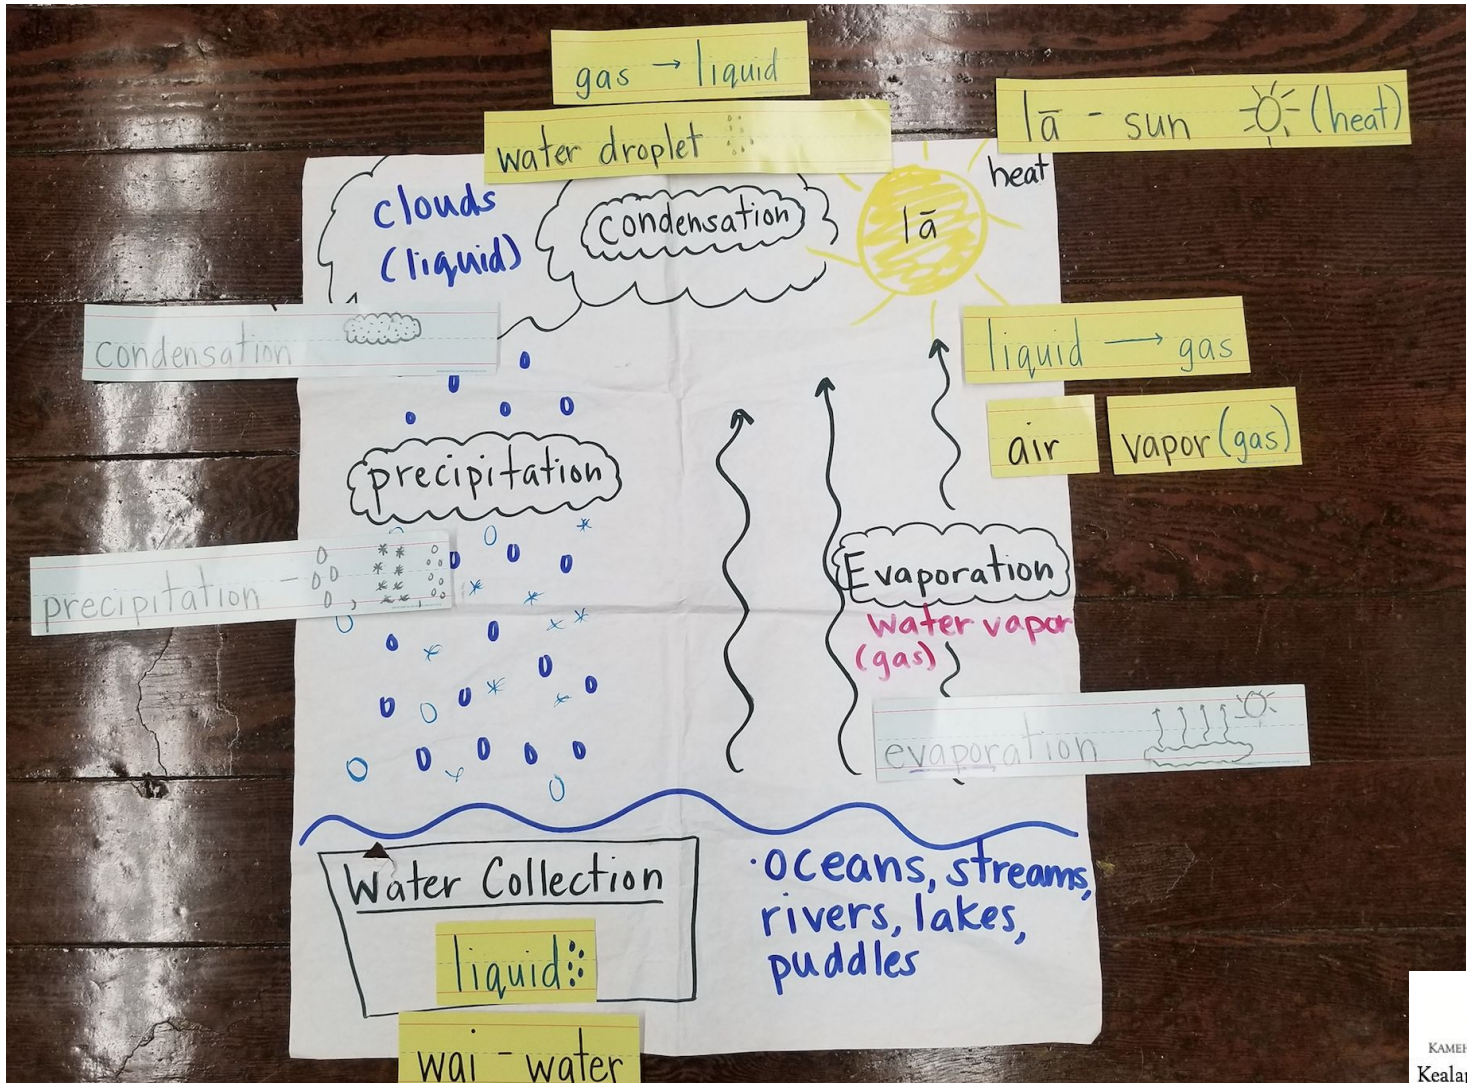 gas → liquid
water droplet
lā - sun (heat)
heat
clouds
(liquid)
condensation
lā
condensation
liquid → gas
air
vapor (gas)
precipitation
precipitation -
Evaporation
water vapor
(gas)
evaporation
Water Collection
liquid
wai - water
· oceans, streams,
rivers, lakes,
puddles